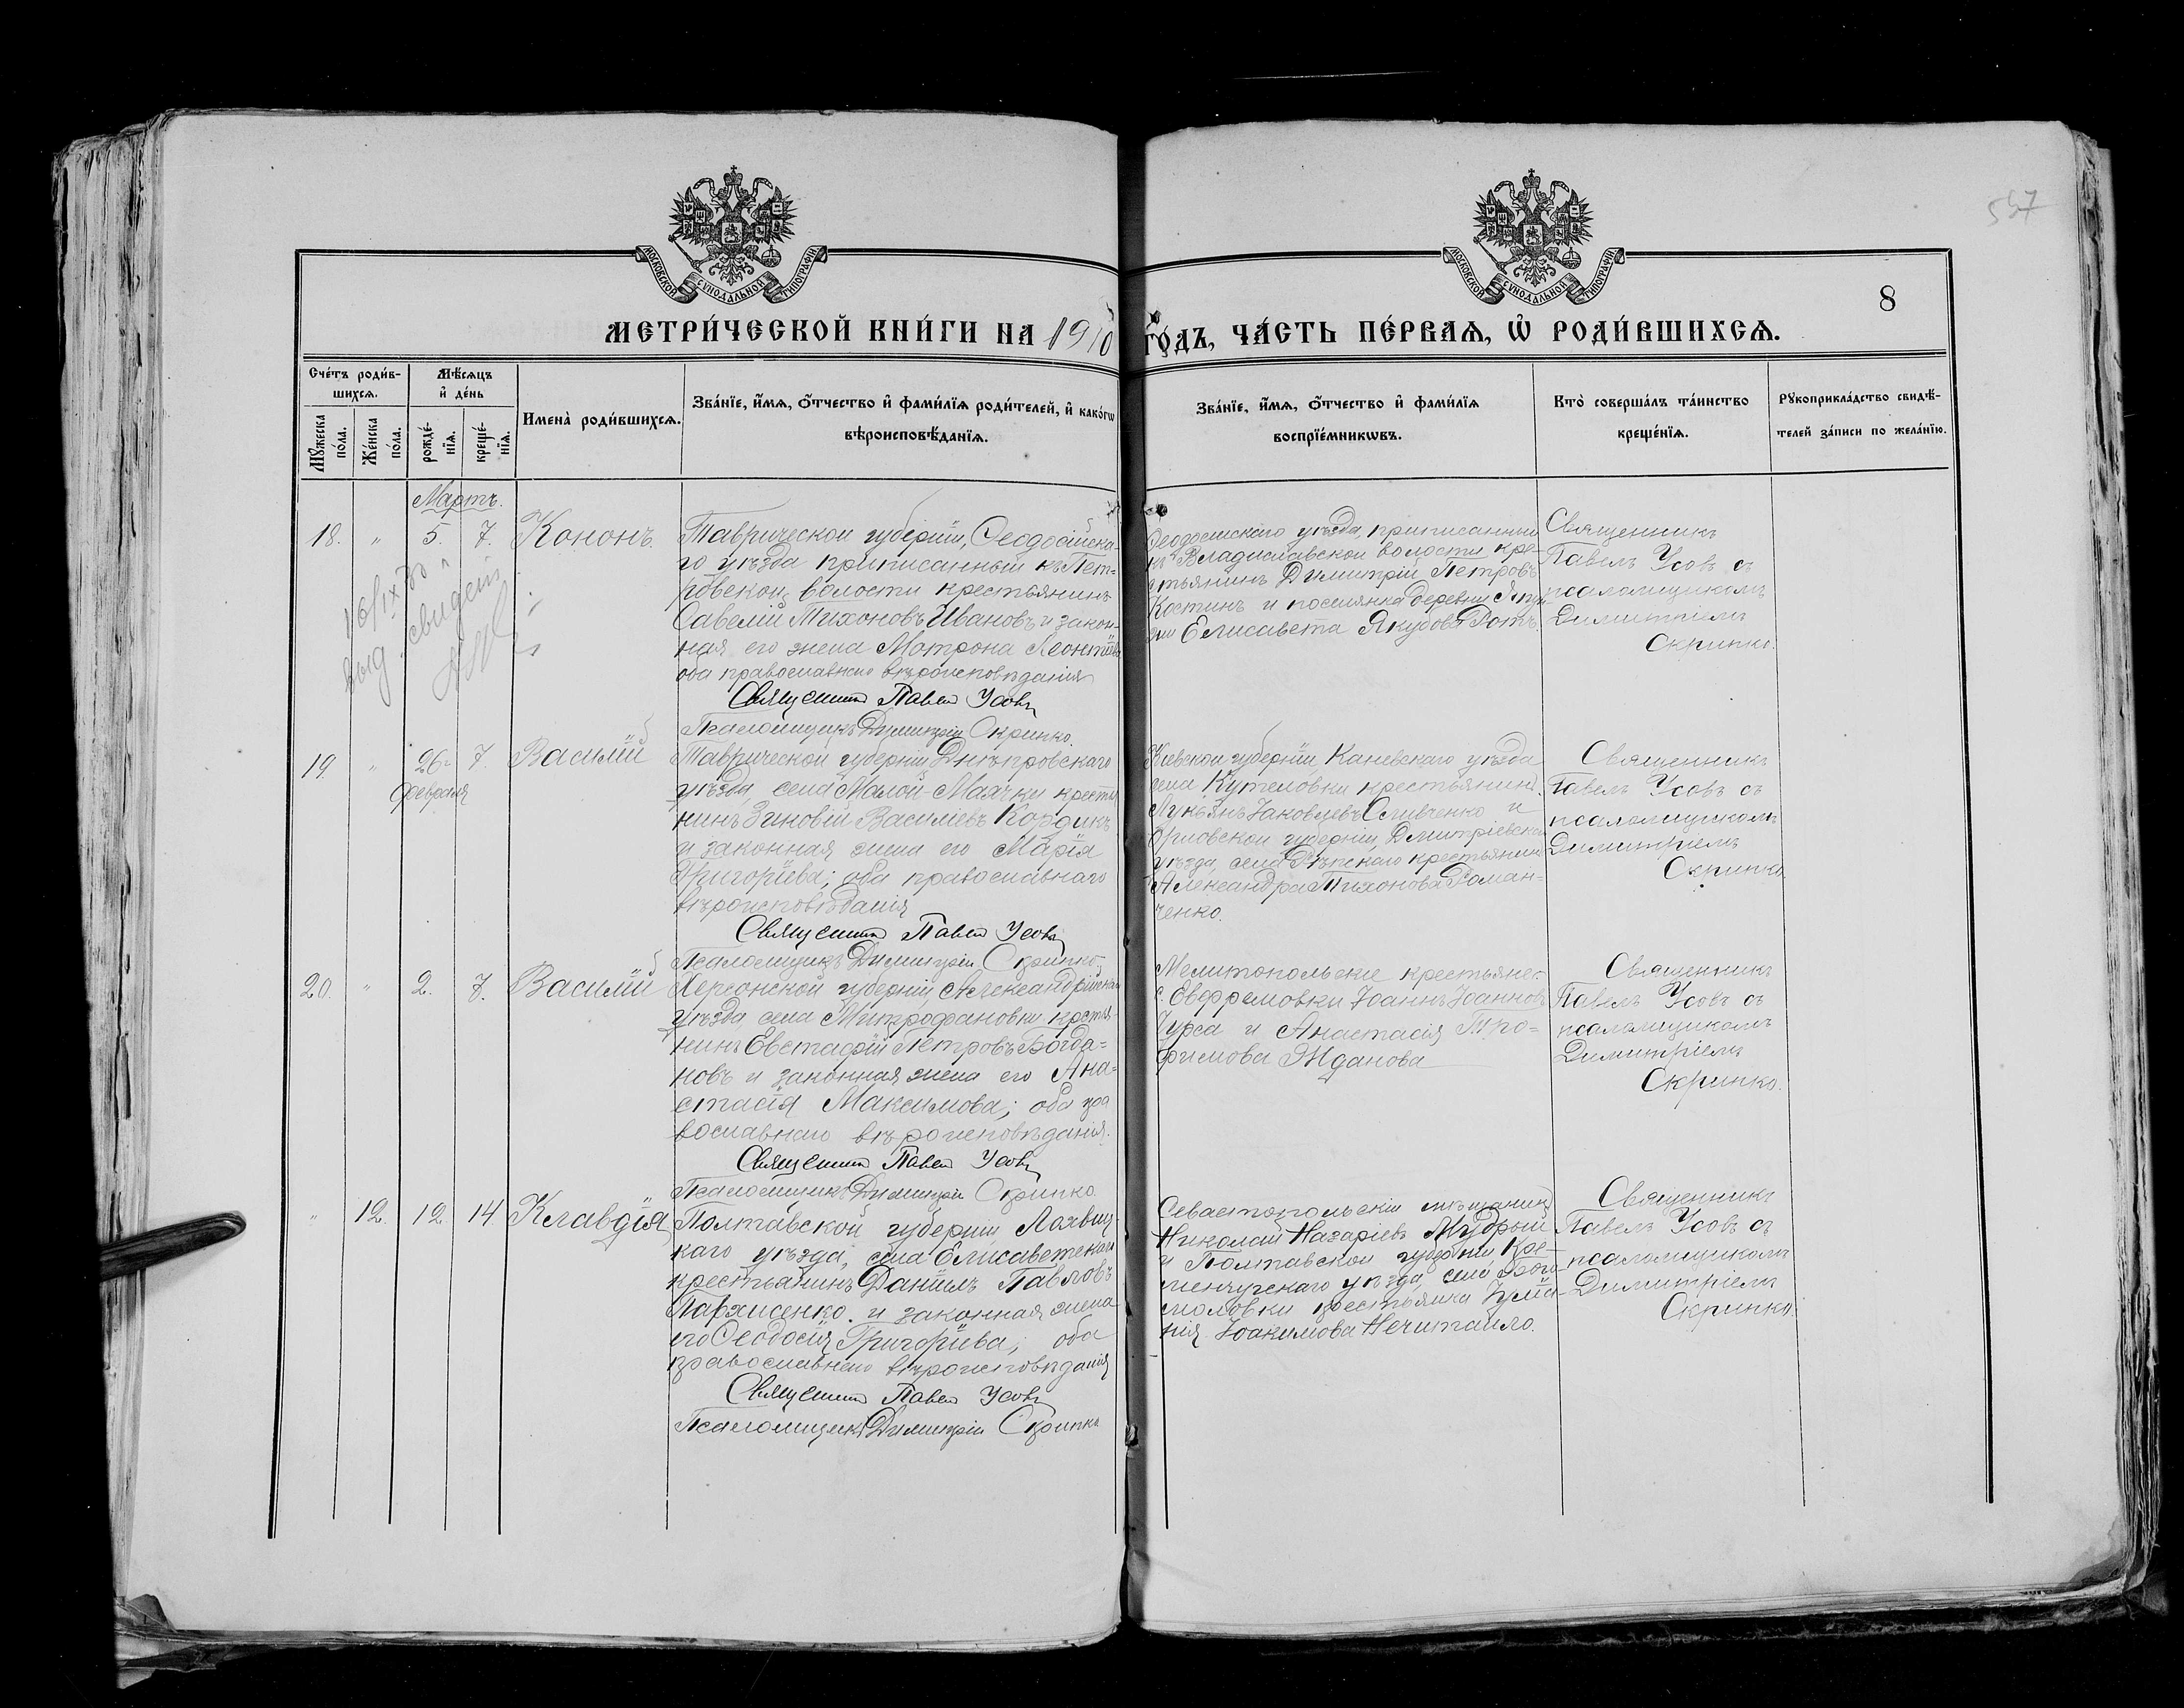 557
МОСКОВСКОЙ СУНОДАЛЬНОЙ ТИПОГРАФІИ
МОСКОВСКОЙ СУНОДАЛЬНОЙ ТИПОГРАФІИ
8
МЕТРИ́ЧЕСКОЙ КНИ́ГИ НА 1910 ГО́ДЪ, ЧА́СТЬ ПЕ́РВАѦ, Ѡ҆ РОДИ́ВШИХСѦ.
Сче́тъ роди́в-
шихсѧ.
Мѣ́сѧцъ
и҆ де́нь
Мꙋ́жеска
по́ла.
Же́нска
по́ла.
рожде́-
нїѧ.
креще́-
нїѧ.
Имена̀ роди́вшихсѧ.
Зва́нїе, и҆́мѧ, ѻ҆́тчество и҆ фами́лїѧ роди́телей, и҆ како́гѡ
вѣроисповѣ́данїѧ.
Зва́нїе, и҆́мѧ, ѻ҆́тчество и҆ фами́лїѧ
воспрїе́мникѡвъ.
Кто̀ соверша́лъ та́инство
креще́нїѧ.
Рꙋкоприкла́дство свидѣ́-
телей за́писи по жела́нїю.
Мартъ.
18. " 5. 7. Кононъ.
Таврической губерніи, Ѳеодосійска-
го уѣзда приписанный къ Пет-
ровской волости крестьянинъ
Савелій Тихоновъ Ивановъ и закон-
ная его жена Матрона Леонтіева
оба православнаго вѣроисповѣданія
Священникъ Павелъ Усовъ
Псаломщикъ Димитрій Скрипко.
Ѳеодосійскаго уѣзда, приписанный
къ Владиславской волости кре-
стьянинъ Димитрій Петровъ
Костинъ и поселянка деревни
Елисавета Якубова Ротъ.
Священникъ
Павелъ Усовъ съ
псаломщикомъ
Димитріемъ
Скрипко.
16/IX
выд. свидет.
19. " 26 7. Василій
февраля
Таврической губерніи Днѣпровскаго
уѣзда, села Малой-Маячки крестья
нинъ Зиновій Васильевъ Кордикъ
и законная жена его Марія
Григоріева; оба православнаго
вѣроисповѣданія
Священникъ Павелъ Усовъ
Псаломщикъ Димитрій Скрипко
Кіевской губерніи, Каневскаго уѣзда
села Кутеловки крестьянинъ
Лукьянъ Іаковлевъ Сливченко и
Орловской губерніи, Дмитріевскаго
уѣзда, села крестьянка
Александра Тихонова Роман-
ченко.
Священникъ
Павелъ Усовъ съ
псаломщикомъ
Димитріемъ
Скрипко
20. " 2. 7. Василій
Херсонской губерніи Александрійскаго
уѣзда села Митрофановки крестья-
нинъ Евстафій Петровъ Богда-
новъ и законная жена его Ана-
стасія Максимова; оба пра
вославнаго вѣроисповѣданія.
Священникъ Павелъ Усовъ
Псаломщикъ Димитрій Скрипко
Мелитопольские крестьяне
с. Ефремовки Іоаннъ Іоанновъ
Чурса и Анастасія Тро-
фимова Жданова
Священникъ
Павелъ Усовъ съ
псаломщикомъ
Димитріемъ
Скрипко.
" 12. 12. 14 Клавдія
Полтавской губерніи, Лохвиц-
каго уѣзда, села Елисаветскаго
крестьянинъ Даніилъ Павловъ
Пархисенко и законная жена
его Ѳеодосія Григоріева; оба
православнаго вѣроисповѣданія
Священникъ Павелъ Усовъ
Псаломщикъ Димитрій Скрипко
Севастопольскій мѣщанинъ
Николай Назаріевъ Мудрый
и Полтавской губерніи Кре-
менчугскаго уѣзда, села
крестьянка Іулiа
нія Іоакимова Нечитайло.
Священникъ
Павелъ Усовъ съ
псаломщикомъ
Димитріемъ
Скрипко.